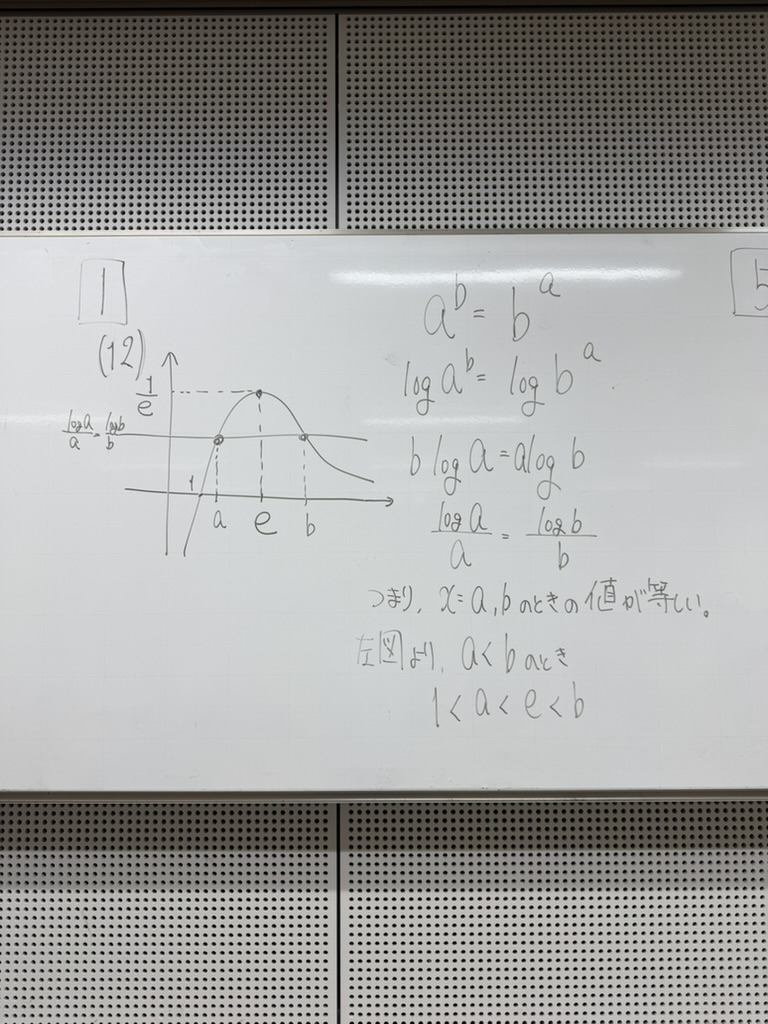 1
(12)
1/e
log a/a = log b/b
1
a e b
a^b = b^a
log a^b = log b^a
b log a = a log b
log a/a = log b/b
つまり、x=a,bのときの値が等しい。
左図より、a<bのとき
1<a<e<b
5